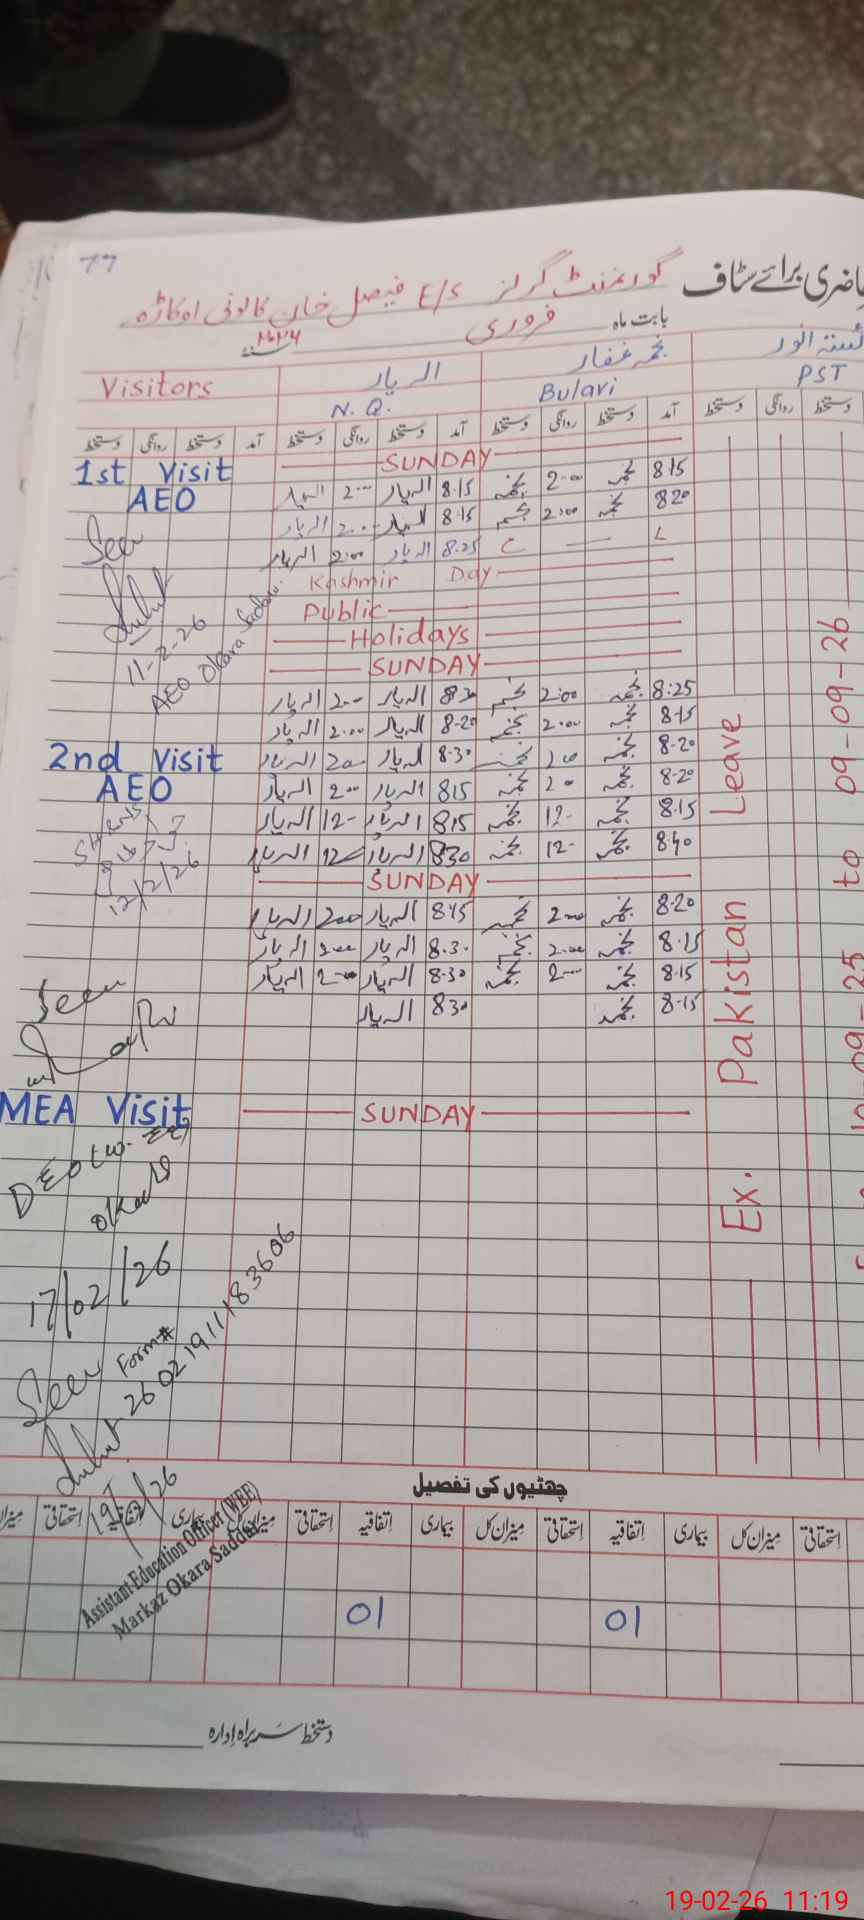 حاضری برائے سٹاف گورنمنٹ گرلز E/S فیصل خان کالونی اوکاڑہ
بابت ماہ فروری ۲۰۲۶
Visitors
الہ یار
N.Q.
نجمہ غفار
Bulavi
انور
PST
دستخط روانگی دستخط آمد دستخط روانگی دستخط آمد دستخط روانگی دستخط آمد دستخط روانگی دستخط
SUNDAY
1st Visit
AEO
الہ یار 2:00 الہ یار 8.15 نجمہ 2:00 نجمہ 8.15
الہ یار 2:00 الہ یار 8.15 نجمہ 2:00 نجمہ 8.20
الہ یار 2:00 الہ یار 8.25 C — L
Seen
11-2-26
AEO Okara Saddar
Kashmir Day
Public
Holidays
SUNDAY
الہ یار 2:00 الہ یار 8.30 نجمہ 2:00 نجمہ 8:25
الہ یار 2:00 الہ یار 8.20 نجمہ 2:00 نجمہ 8.15
2nd Visit
AEO
الہ یار 2:00 الہ یار 8.30 نجمہ 2:00 نجمہ 8.20
الہ یار 2:00 الہ یار 8.15 نجمہ 2:00 نجمہ 8.20
الہ یار 12- الہ یار 8.15 نجمہ 12- نجمہ 8.15
الہ یار 12- الہ یار 8.30 نجمہ 12- نجمہ 8.40
12/2/26
SUNDAY
الہ یار 2:00 الہ یار 8.45 نجمہ 2:00 نجمہ 8.20
الہ یار 2:00 الہ یار 8.30 نجمہ 2:00 نجمہ 8.15
الہ یار 2:00 الہ یار 8.30 نجمہ 2:00 نجمہ 8.15
الہ یار 8.30 نجمہ 8.15
Seen
MEA Visit
SUNDAY
DEO (W-EE)
Okara
17/02/26
Seen
Form#
26021911183606
19/2/26
Assistant Education Officer (WEE)
Markaz Okara Saddar
Ex. Pakistan Leave
10-09-25 to 09-09-26
چھٹیوں کی تفصیل
میزان استحقاقی اتفاقیہ بیماری میزان کل استحقاقی اتفاقیہ بیماری میزان کل استحقاقی اتفاقیہ بیماری میزان کل استحقاقی
01 01
دستخط سربراہ ادارہ
19-02-26 11:19